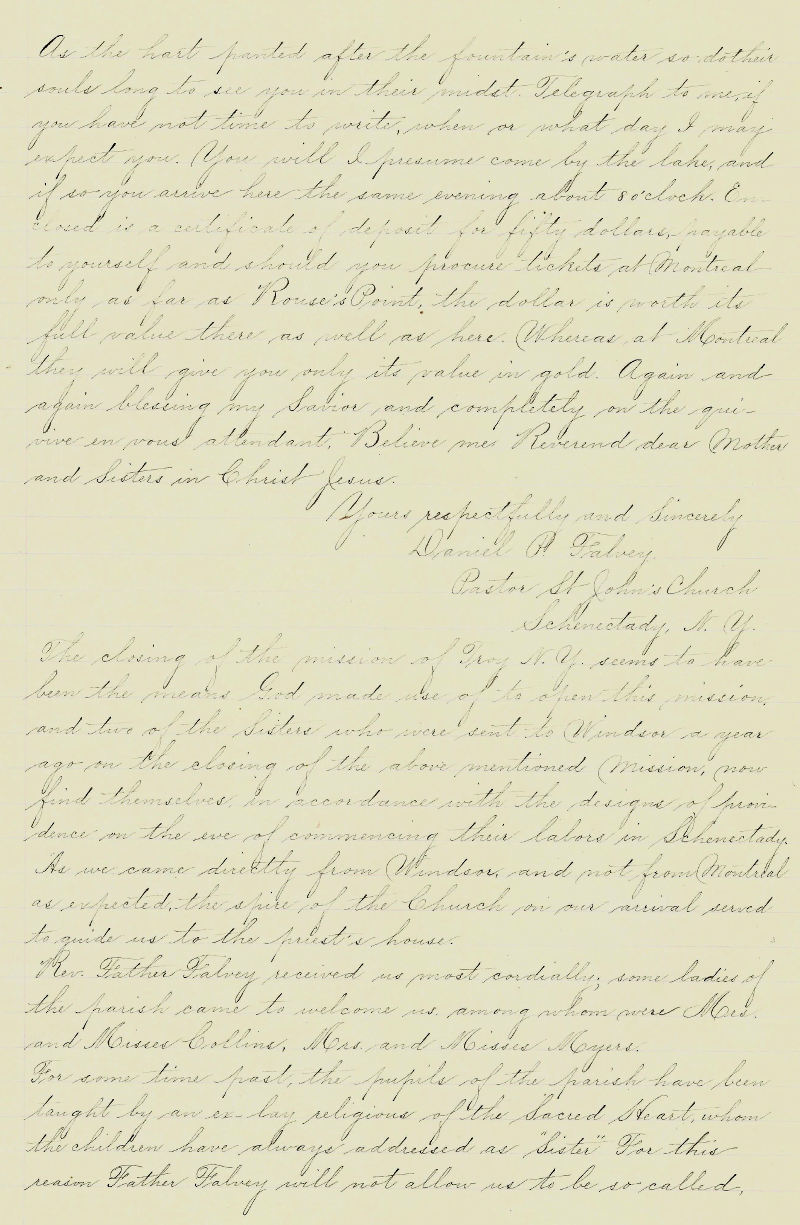 As the hart panted after the fountain's water so do their
souls long to see you in their midst. Telegraph to me, if
you have not time to write, when or what day I may
expect you. You will I presume come by the lake, and
if so you arrive here the same evening about 8 o'clock. En-
closed is a certificate of deposit for fifty dollars, payable
to yourself and should you procure tickets at Montreal
only as far as Rouse's Point, the dollar is worth its
full value there as well as here. Whereas at Montreal
they will give you only its value in gold. Again and
again blessing my Savior and completely on the qui-
vive en vous attendant, Believe me, Reverend dear Mother
and Sisters in Christ Jesus.
Yours respectfully and Sincerely
Daniel P. Falvey.
Pastor St John's Church
Schenectady, N. Y.
The closing of the mission of Troy N. Y. seems to have
been the means God made use of to open this mission,
and two of the Sisters who were sent to Windsor a year
ago on the closing of the above mentioned Mission, now
find themselves, in accordance with the designs of provi-
dence on the eve of commencing their labors in Schenectady.
As we came directly from Windsor, and not from Montreal
as expected, the spire of the Church on our arrival served
to guide us to the priest's house.
Rev. Father Falvey received us most cordially; some ladies of
the parish came to welcome us, among whom were Mrs.
and Misses Collins, Mrs. and Misses Myers.
For some time past, the pupils of the parish have been
taught by an ex-lay religious of the Sacred Heart, whom
the children have always addressed as "Sister" For this
reason Father Falvey will not allow us to be so called,